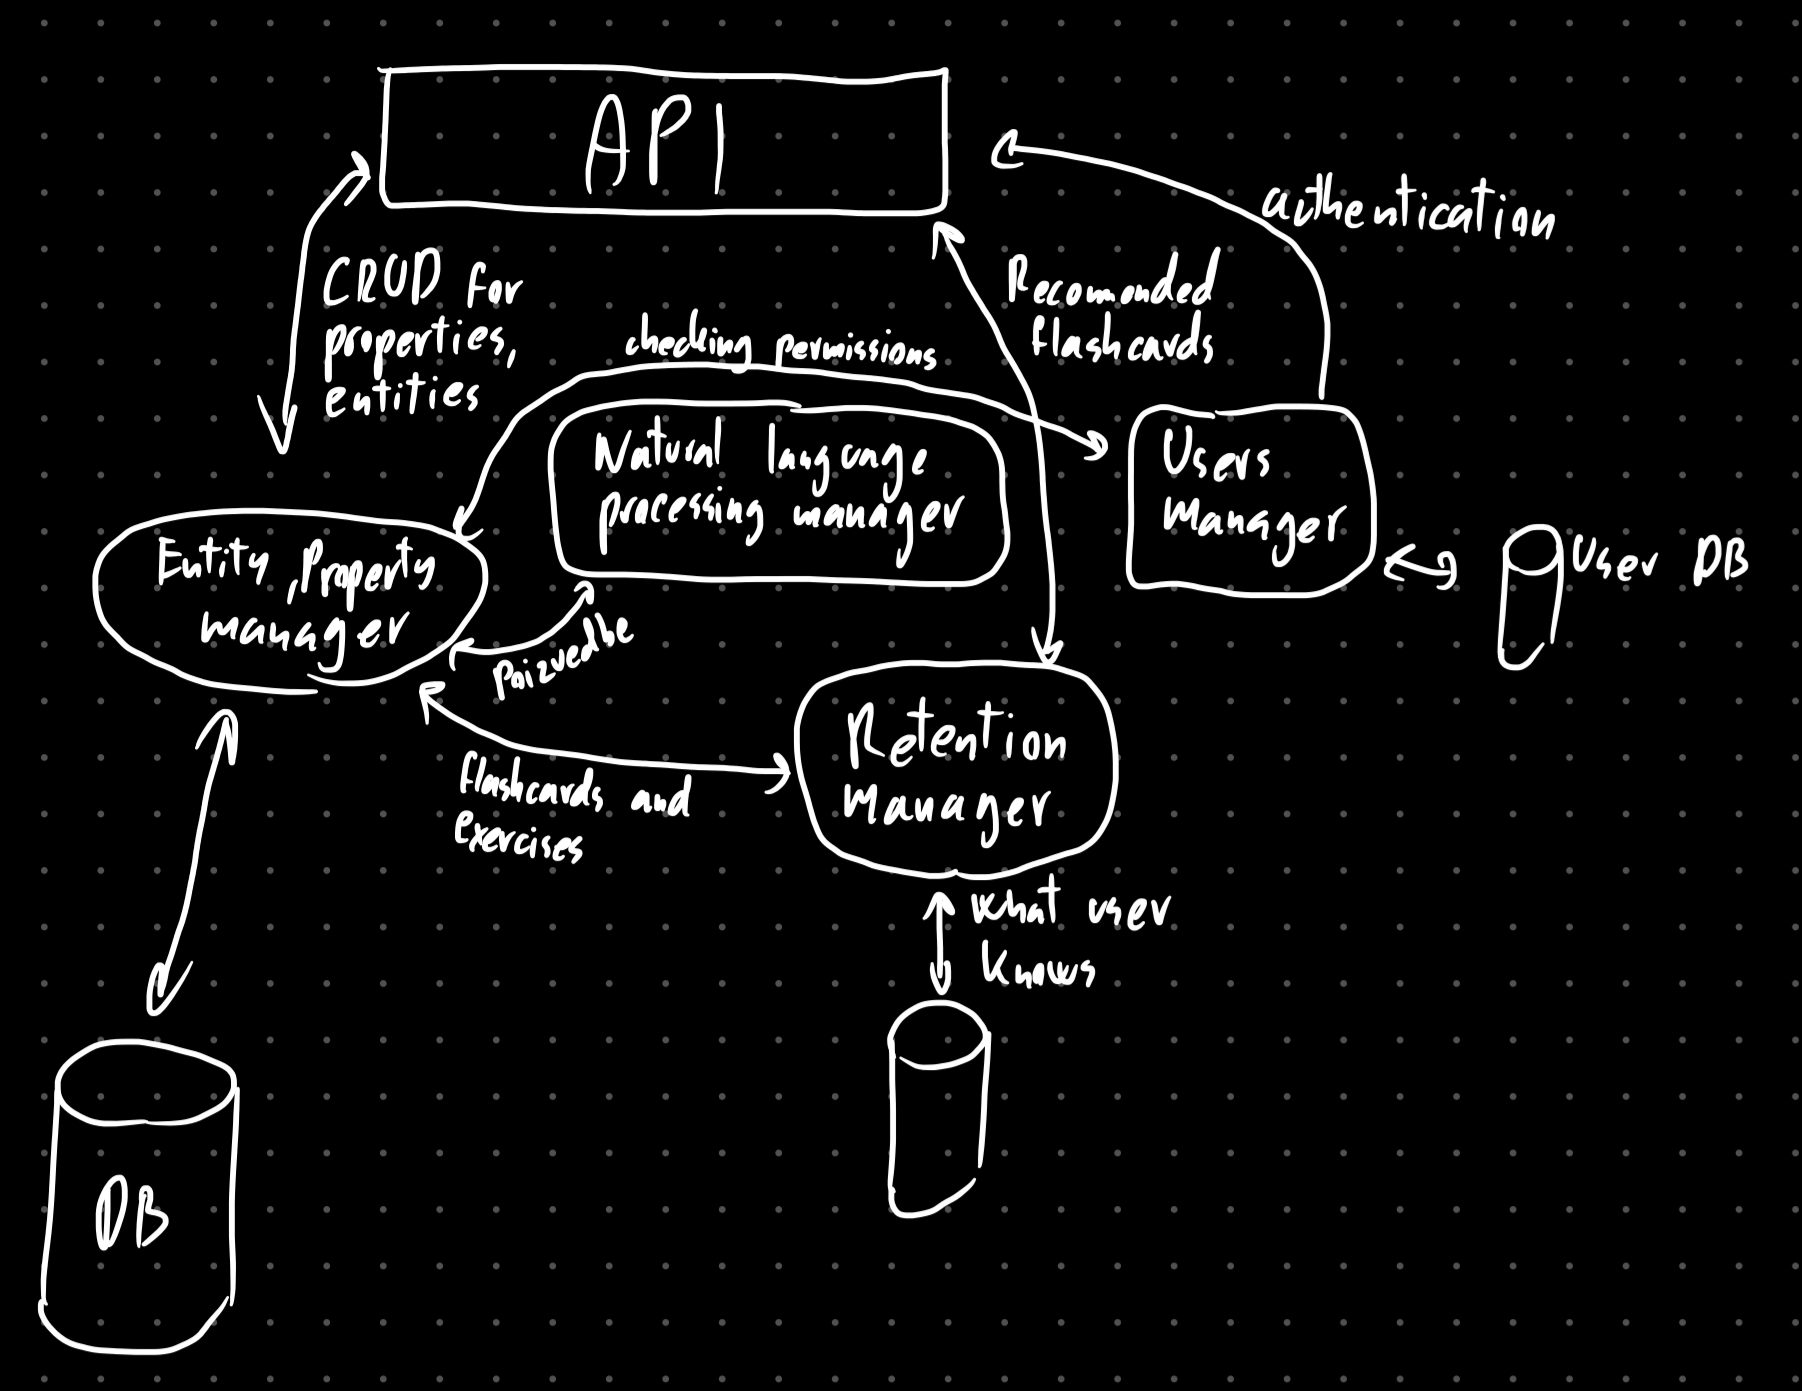 API
authentication
CRUD for
properties,
entities
Recomonded
flashcards
checking permissions
Natural language
processing manager
Users
Manager
Entity, Property
manager
User DB
Retention
Manager
flashcards and
exercises
What user
knows
DB